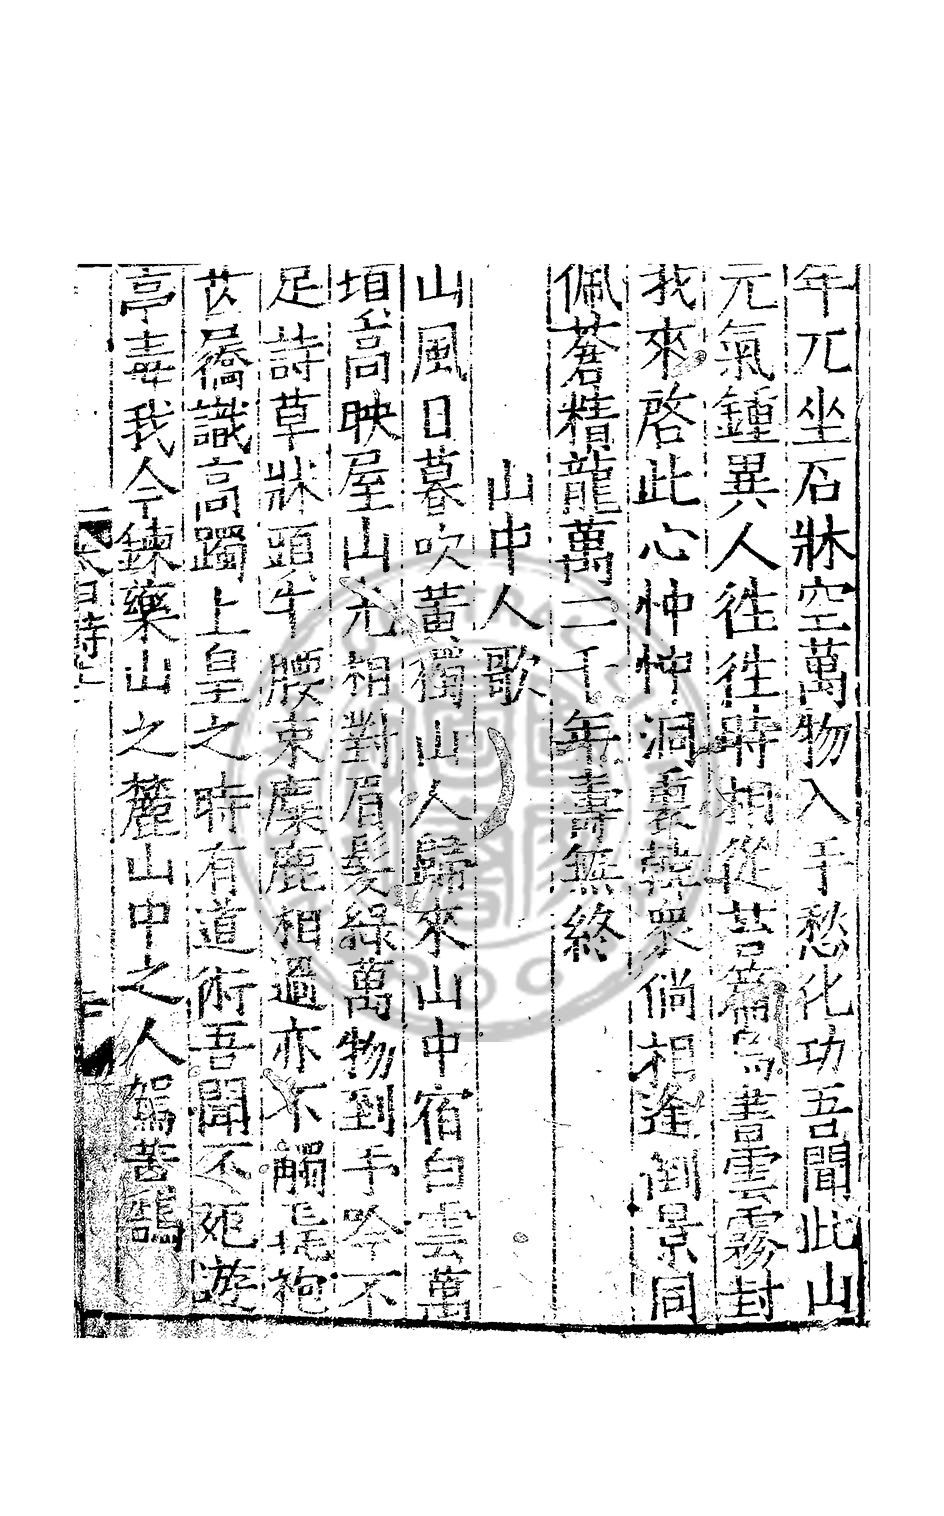 年兀坐石牀空萬物入手愁化功吾聞此山
元氣鍾異人徃徃時相從苔篇鳥書雲霧封
我來啓此心忡忡洞裏韓衆倘相逢倒景同
佩蒼精龍萬二千年壽無終
山中人歌
山風日暮吹黃獨山人歸來山中宿白雲萬
頃高映屋山光相對眉髮綠萬物到手吟不
足詩草牀頭牛腰束麋鹿相過亦不觸毛袍
芒屩識高躅上皇之時有道術吾聞不死遊
亭毒我今鍊藥山之麓山中之人駕黃鵠
太白詩